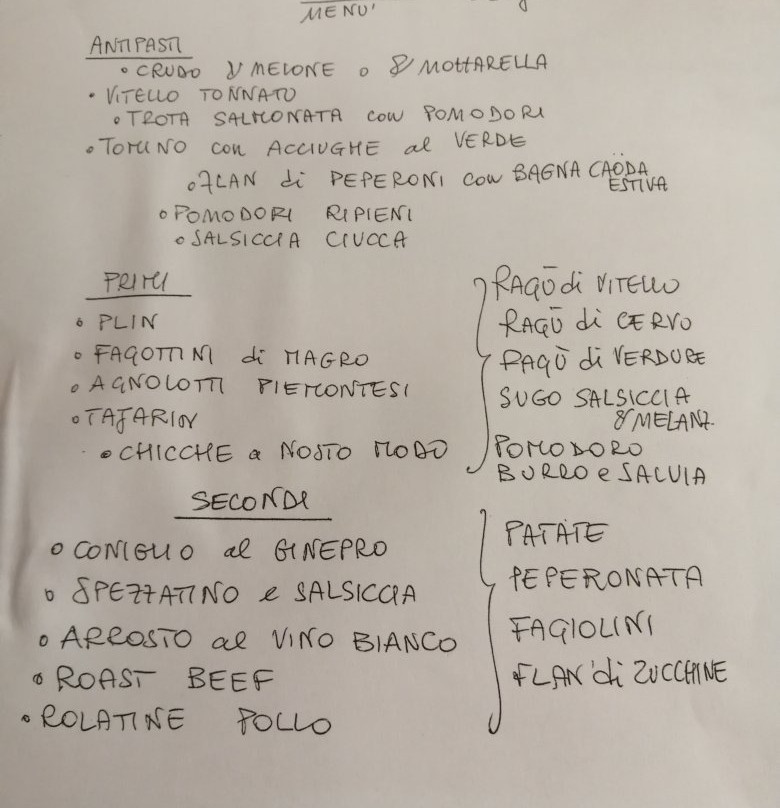 MENU'
ANTIPASTI
• CRUDO & MELONE o & MOZZARELLA
• VITELLO TONNATO
• TROTA SALMONATA con POMODORI
• TOMINO con ACCIUGHE al VERDE
• FLAN di PEPERONI con BAGNA CAÖDA
ESTIVA
• POMODORI RIPIENI
• SALSICCIA CIUCCA
PRIMI
• PLIN
• FAGOTTINI di MAGRO
• AGNOLOTTI PIEMONTESI
• TAJARIN
• CHICCHE a NOSTO MODO
RAGÙ di VITELLO
RAGÙ di CERVO
RAGÙ di VERDURE
SUGO SALSICCIA
& MELANZ.
POMODORO
BURRO e SALVIA
SECONDI
• CONIGLIO al GINEPRO
• SPEZZATINO e SALSICCIA
• ARROSTO al VINO BIANCO
• ROAST BEEF
• ROLATINE POLLO
PATATE
PEPERONATA
FAGIOLINI
FLAN di ZUCCHINE